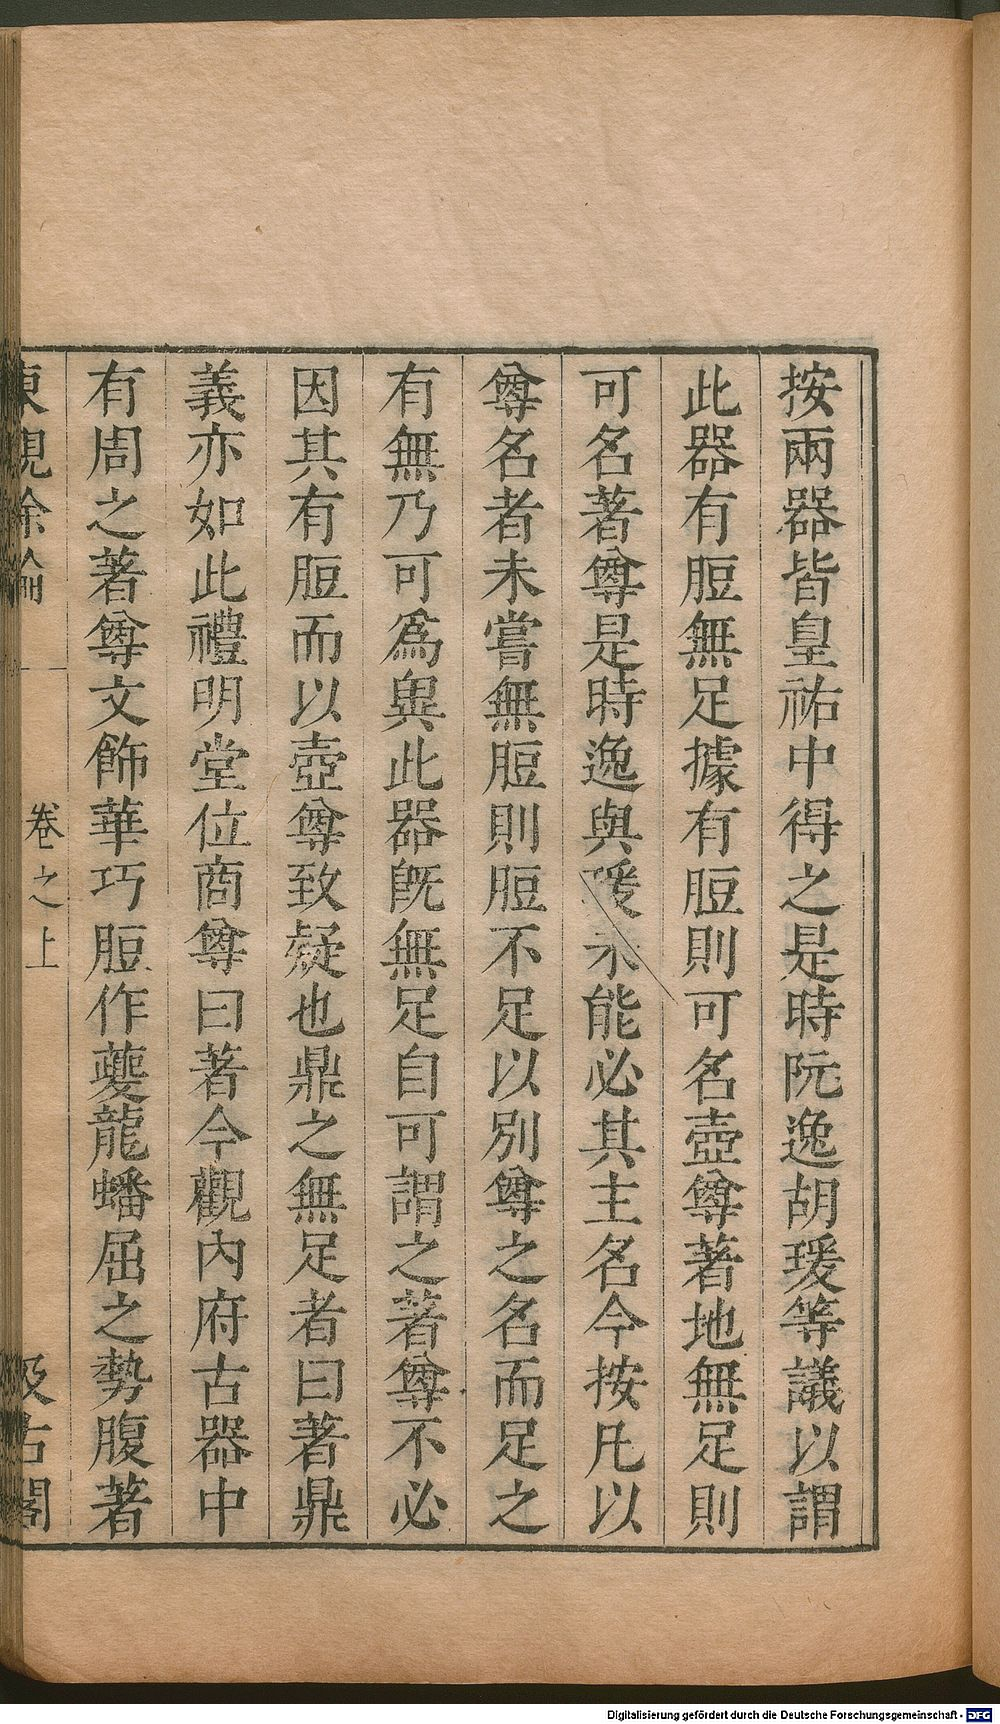 按兩器皆皇祐中得之是時阮逸胡瑗等議以謂
此器有脰無足據有脰則可名壺尊著地無足則
可名著尊是時逸與瑗未能必其主名今按凡以
尊名者未嘗無脰則脰不足以別尊之名而足之
有無乃可爲異此器旣無足自可謂之著尊不必
因其有脰而以壺尊致疑也鼎之無足者曰著鼎
義亦如此禮明堂位商尊曰著今觀內府古器中
有周之著尊文飾華巧脰作夔龍蟠屈之勢腹著
東觀余論 卷之上 汲古閣
Digitalisierung gefördert durch die Deutsche Forschungsgemeinschaft - DFG